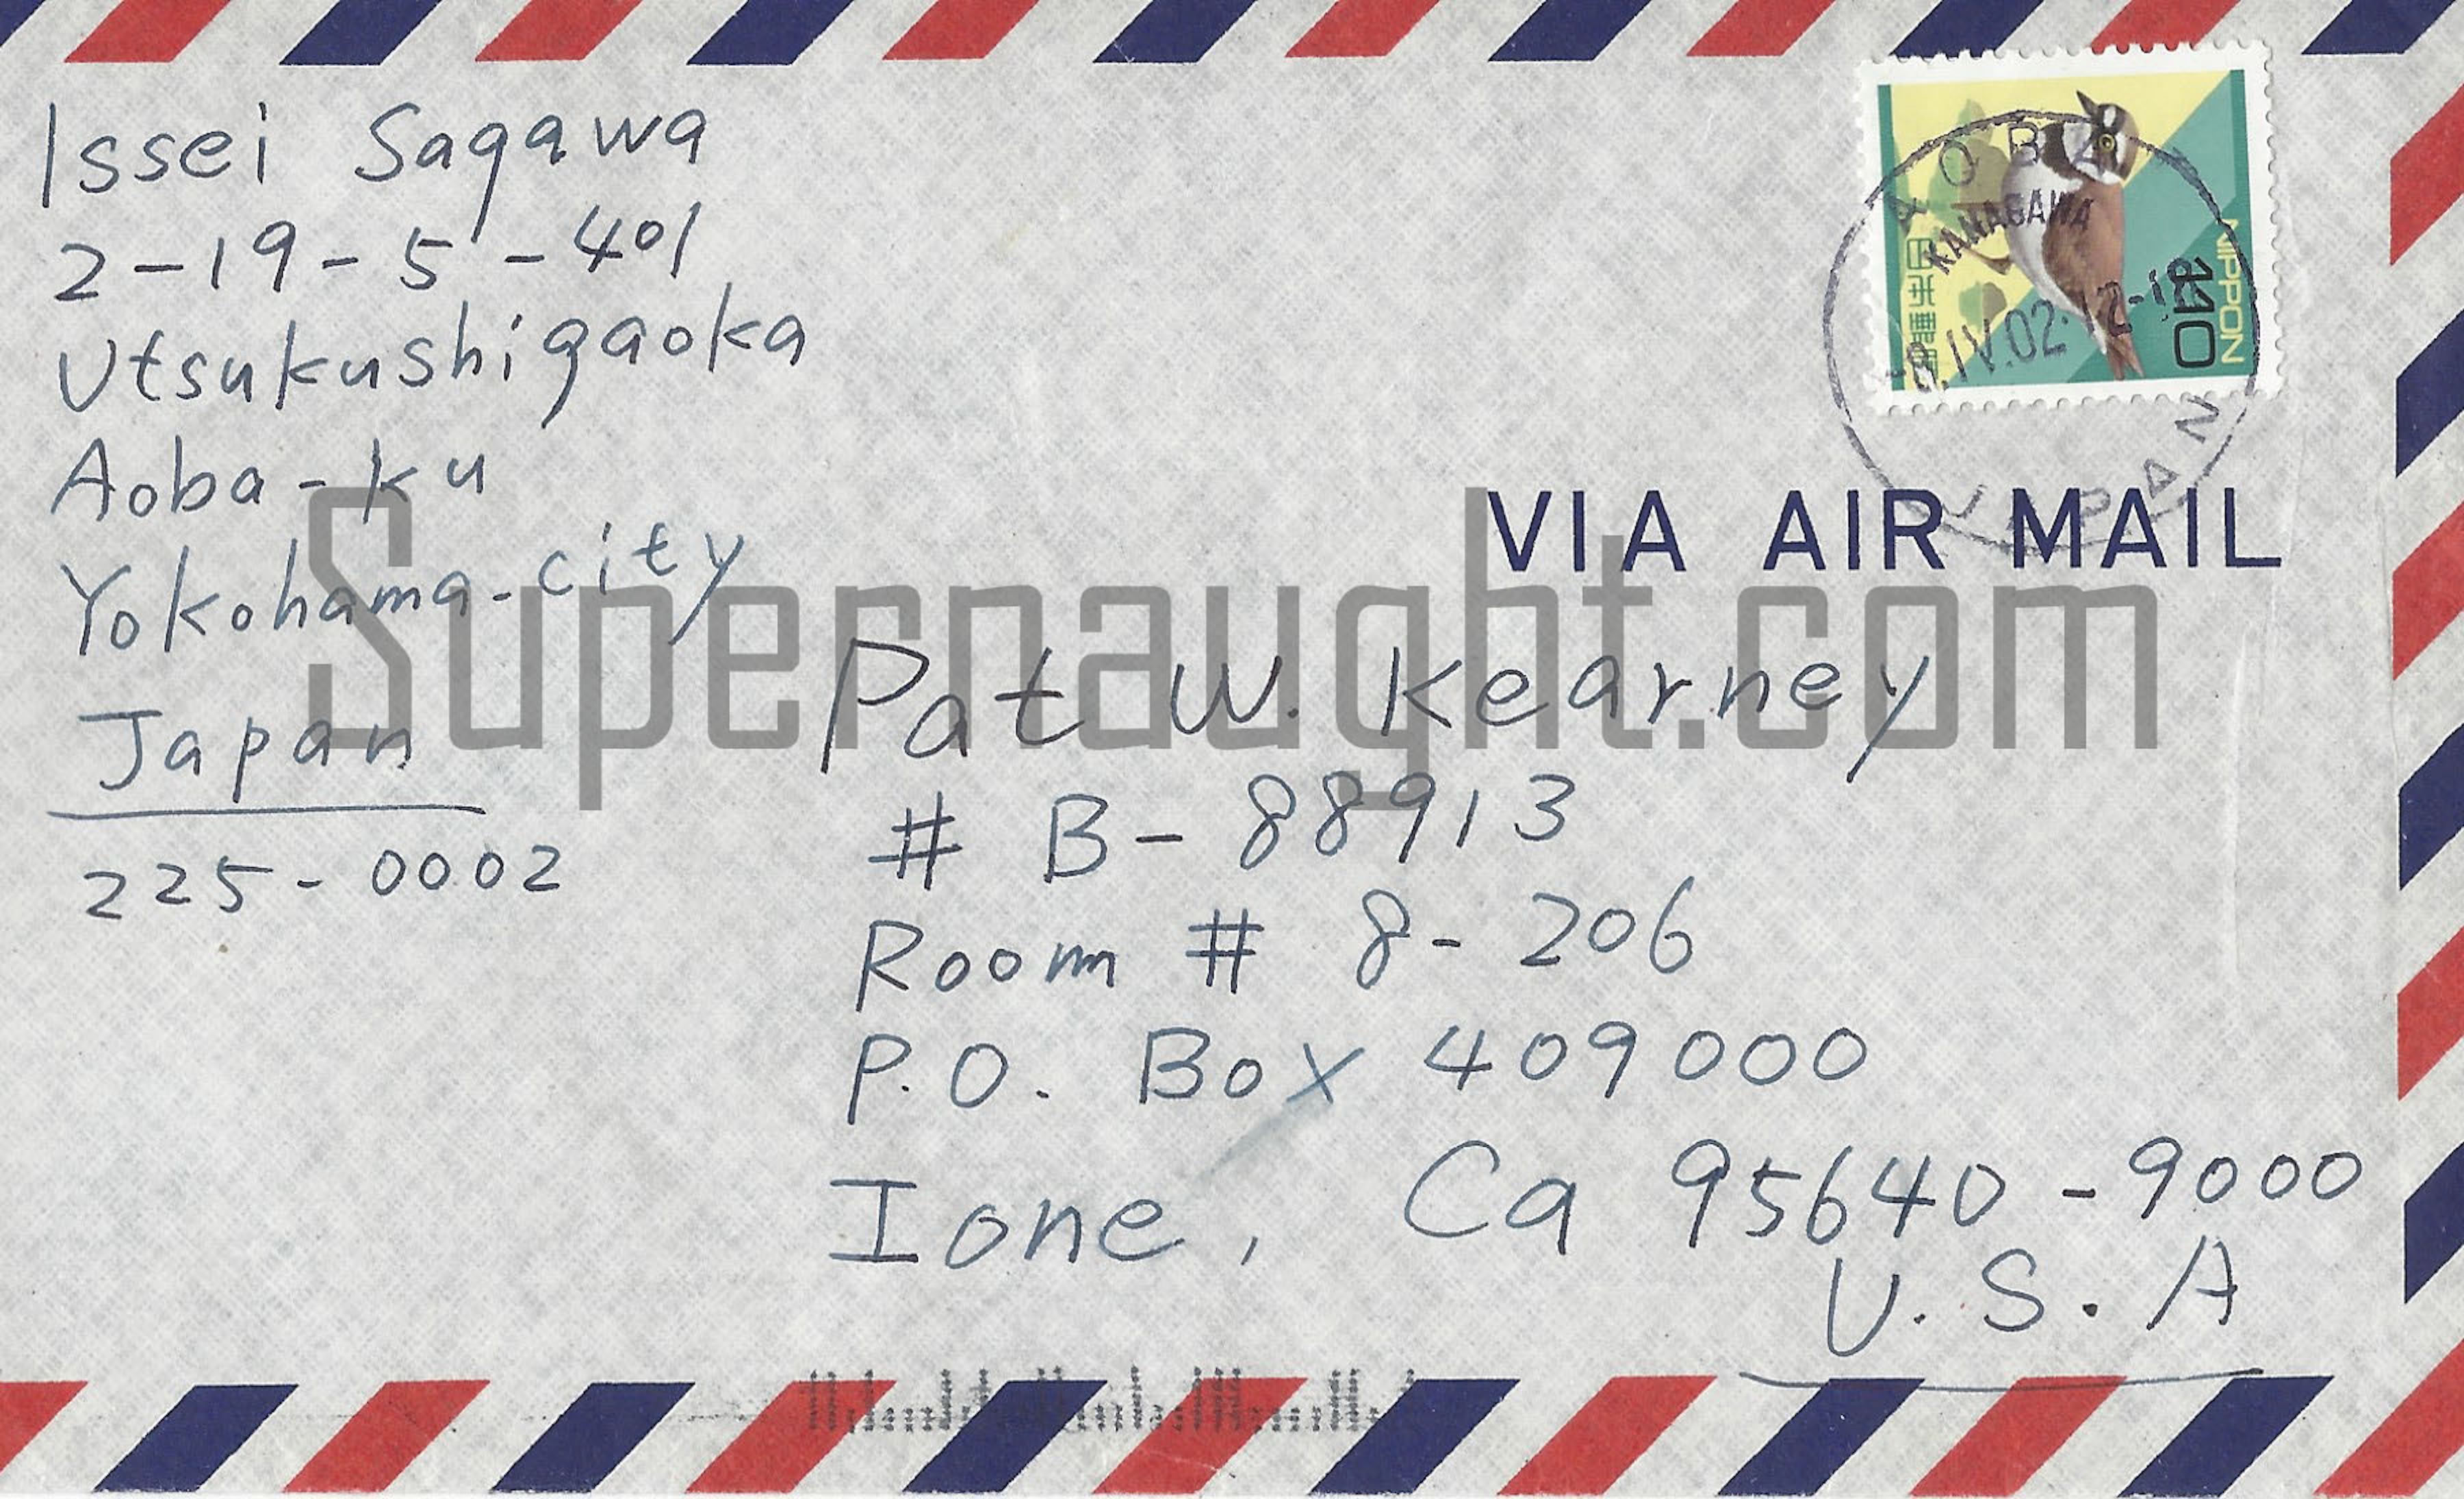 Issei Sagawa
2-19-5-401
Utsukushigaoka
Aoba-ku
Yokohama-city
Japan
225-0002
AOBA
KANAGAWA
.IV.02.12-18
JAPAN
日本郵便
NIPPON
110
VIA AIR MAIL
Supernaught.com
Pat W. Kearney
# B-88913
Room # 8-206
P.O. Box 409000
Ione, Ca 95640-9000
U.S.A